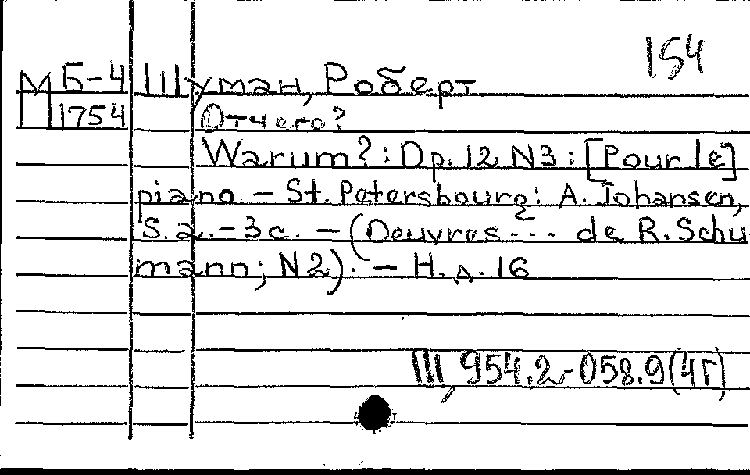 154
М Б-4 Шуман, Роберт
П 1754 Отчего?
Warum?: Op. 12 N3 : [Pour le]
piano – St. Petersbourg: A. Johansen,
S. a. – 3 с. – (Oeuvres ... de R. Schu
mann; N2). – Н. д. 16
Ш, 954.2-058.9(4Г)